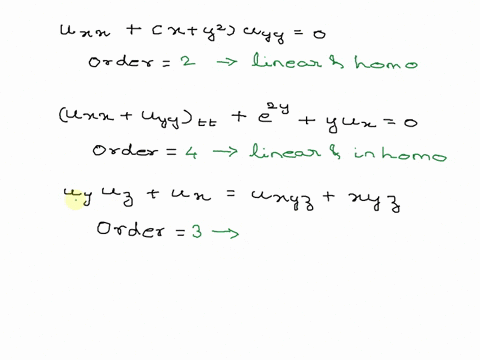 uxx + (x+y²) uyy = 0
Order = 2 → linear & homo
(uxx + uyy)tt + e^2y + yux = 0
Order = 4 → linear & inhomo
uy uz + ux = uxyz + xyz
Order = 3 →